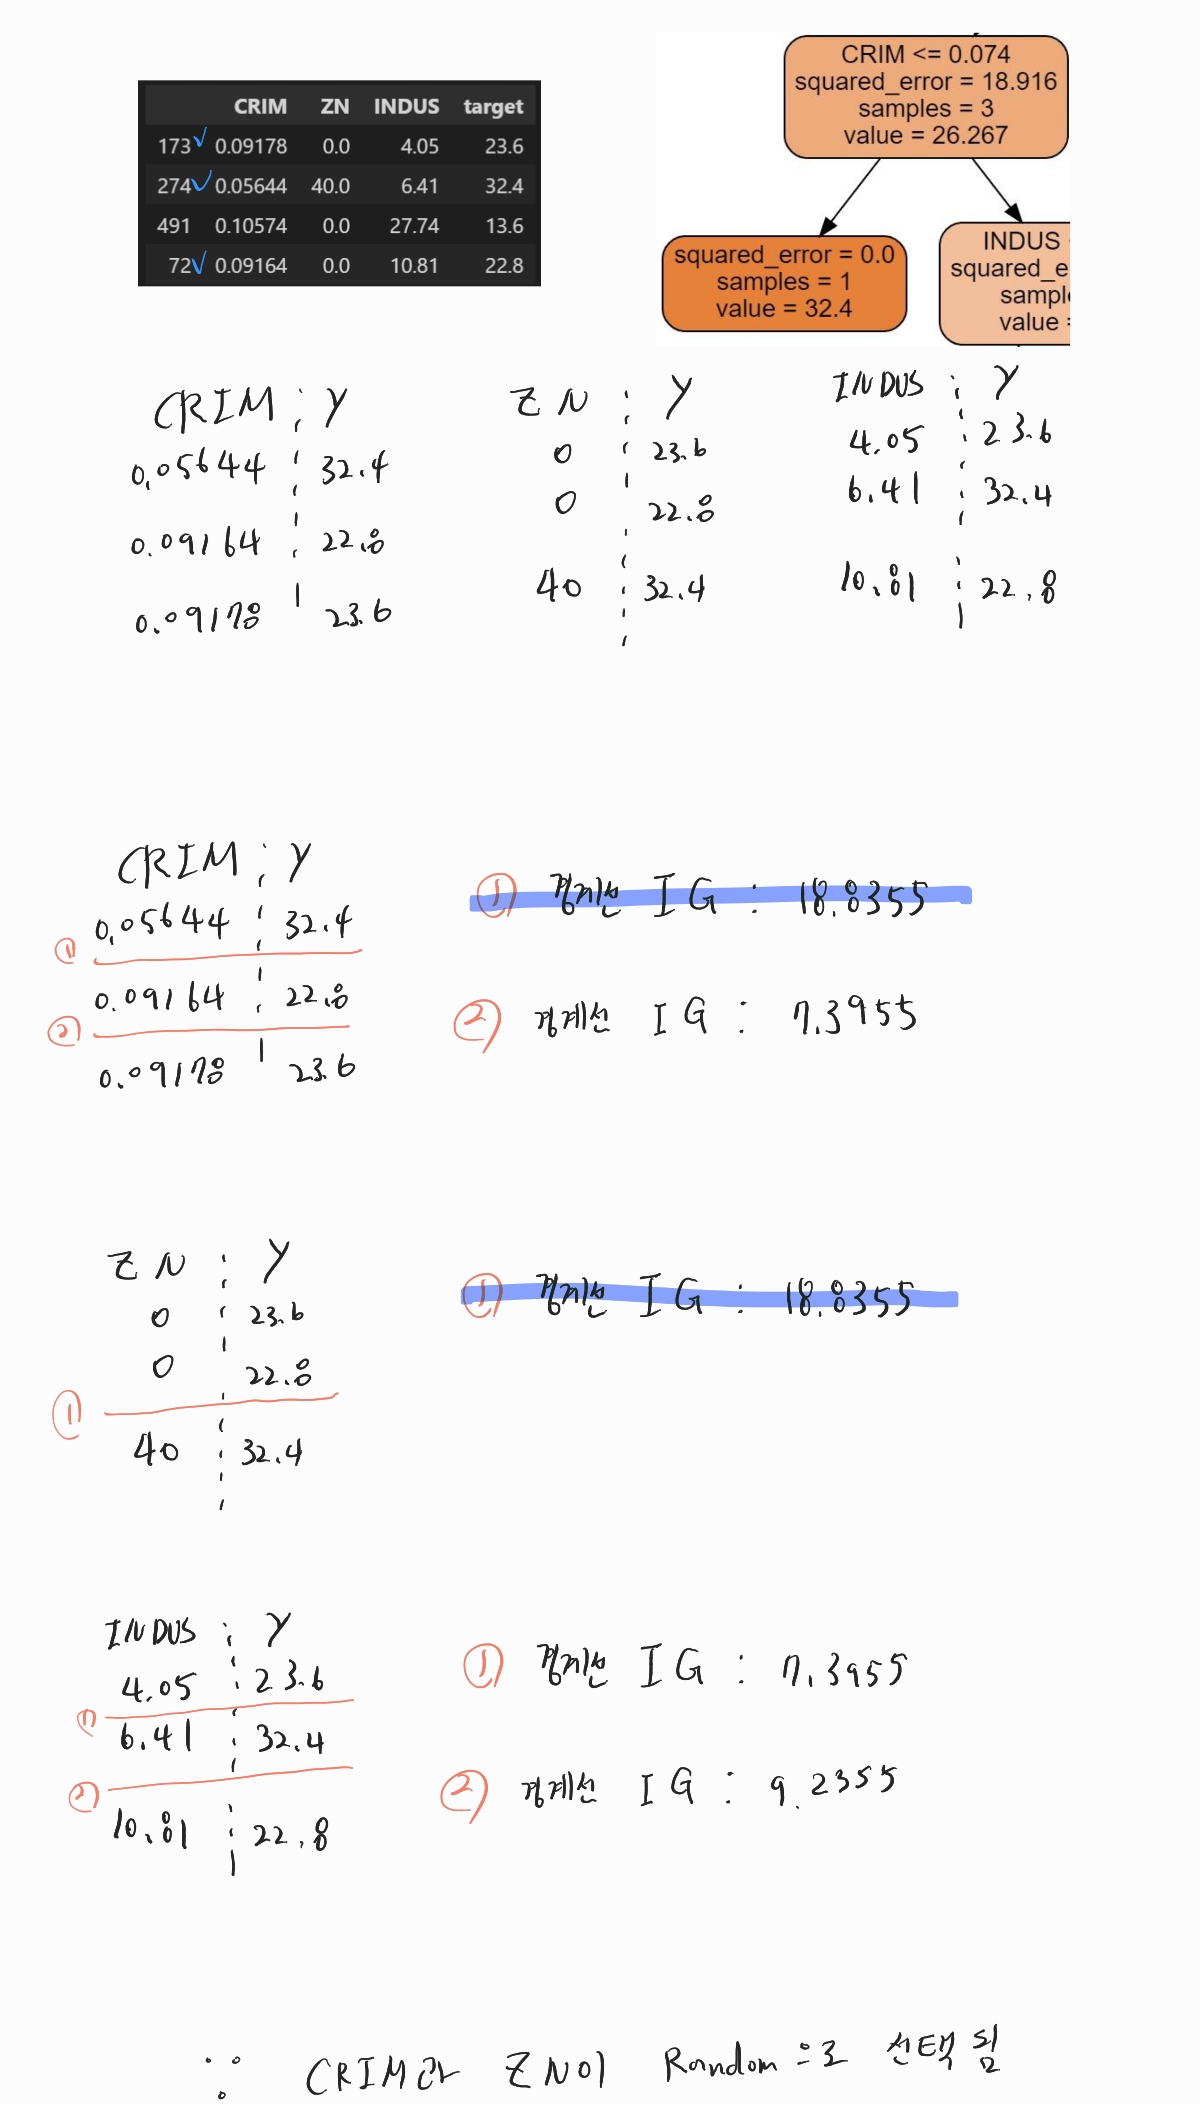 CRIM ZN INDUS target
173 0.09178 0.0 4.05 23.6
274 0.05644 40.0 6.41 32.4
491 0.10574 0.0 27.74 13.6
72 0.09164 0.0 10.81 22.8
CRIM <= 0.074
squared_error = 18.916
samples = 3
value = 26.267
squared_error = 0.0
samples = 1
value = 32.4
INDUS
squared_e
sampl
value =
CRIM Y
0.05644 32.4
0.09164 22.8
0.09178 23.6
ZN Y
0 23.6
0 22.8
40 32.4
INDUS Y
4.05 23.6
6.41 32.4
10.81 22.8
CRIM Y
0.05644 32.4
①
0.09164 22.8
②
0.09178 23.6
① 경계선 IG : 18.8355
② 경계선 IG : 7.3955
ZN Y
0 23.6
0 22.8
①
40 32.4
① 경계선 IG : 18.8355
INDUS Y
4.05 23.6
①
6.41 32.4
②
10.81 22.8
① 경계선 IG : 7.3955
② 경계선 IG : 9.2355
∵ CRIM과 ZN이 Random으로 선택됨